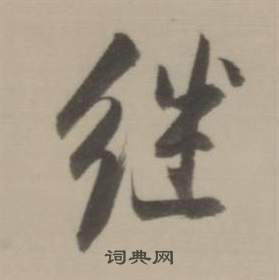 继
词典网